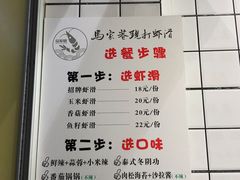 馬宝蓉现打虾滑
选餐步骤
第一步：选虾滑
招牌虾滑 —— 18元/份
玉米虾滑 —— 20元/份
香菇虾滑 —— 20元/份
鱼籽虾滑 —— 22元/份
第二步：选口味
鲜辣+蒜蓉+小米辣 泰式冬阴功
番茄锅锅(不辣) 肉松海苔+沙拉酱(不辣)